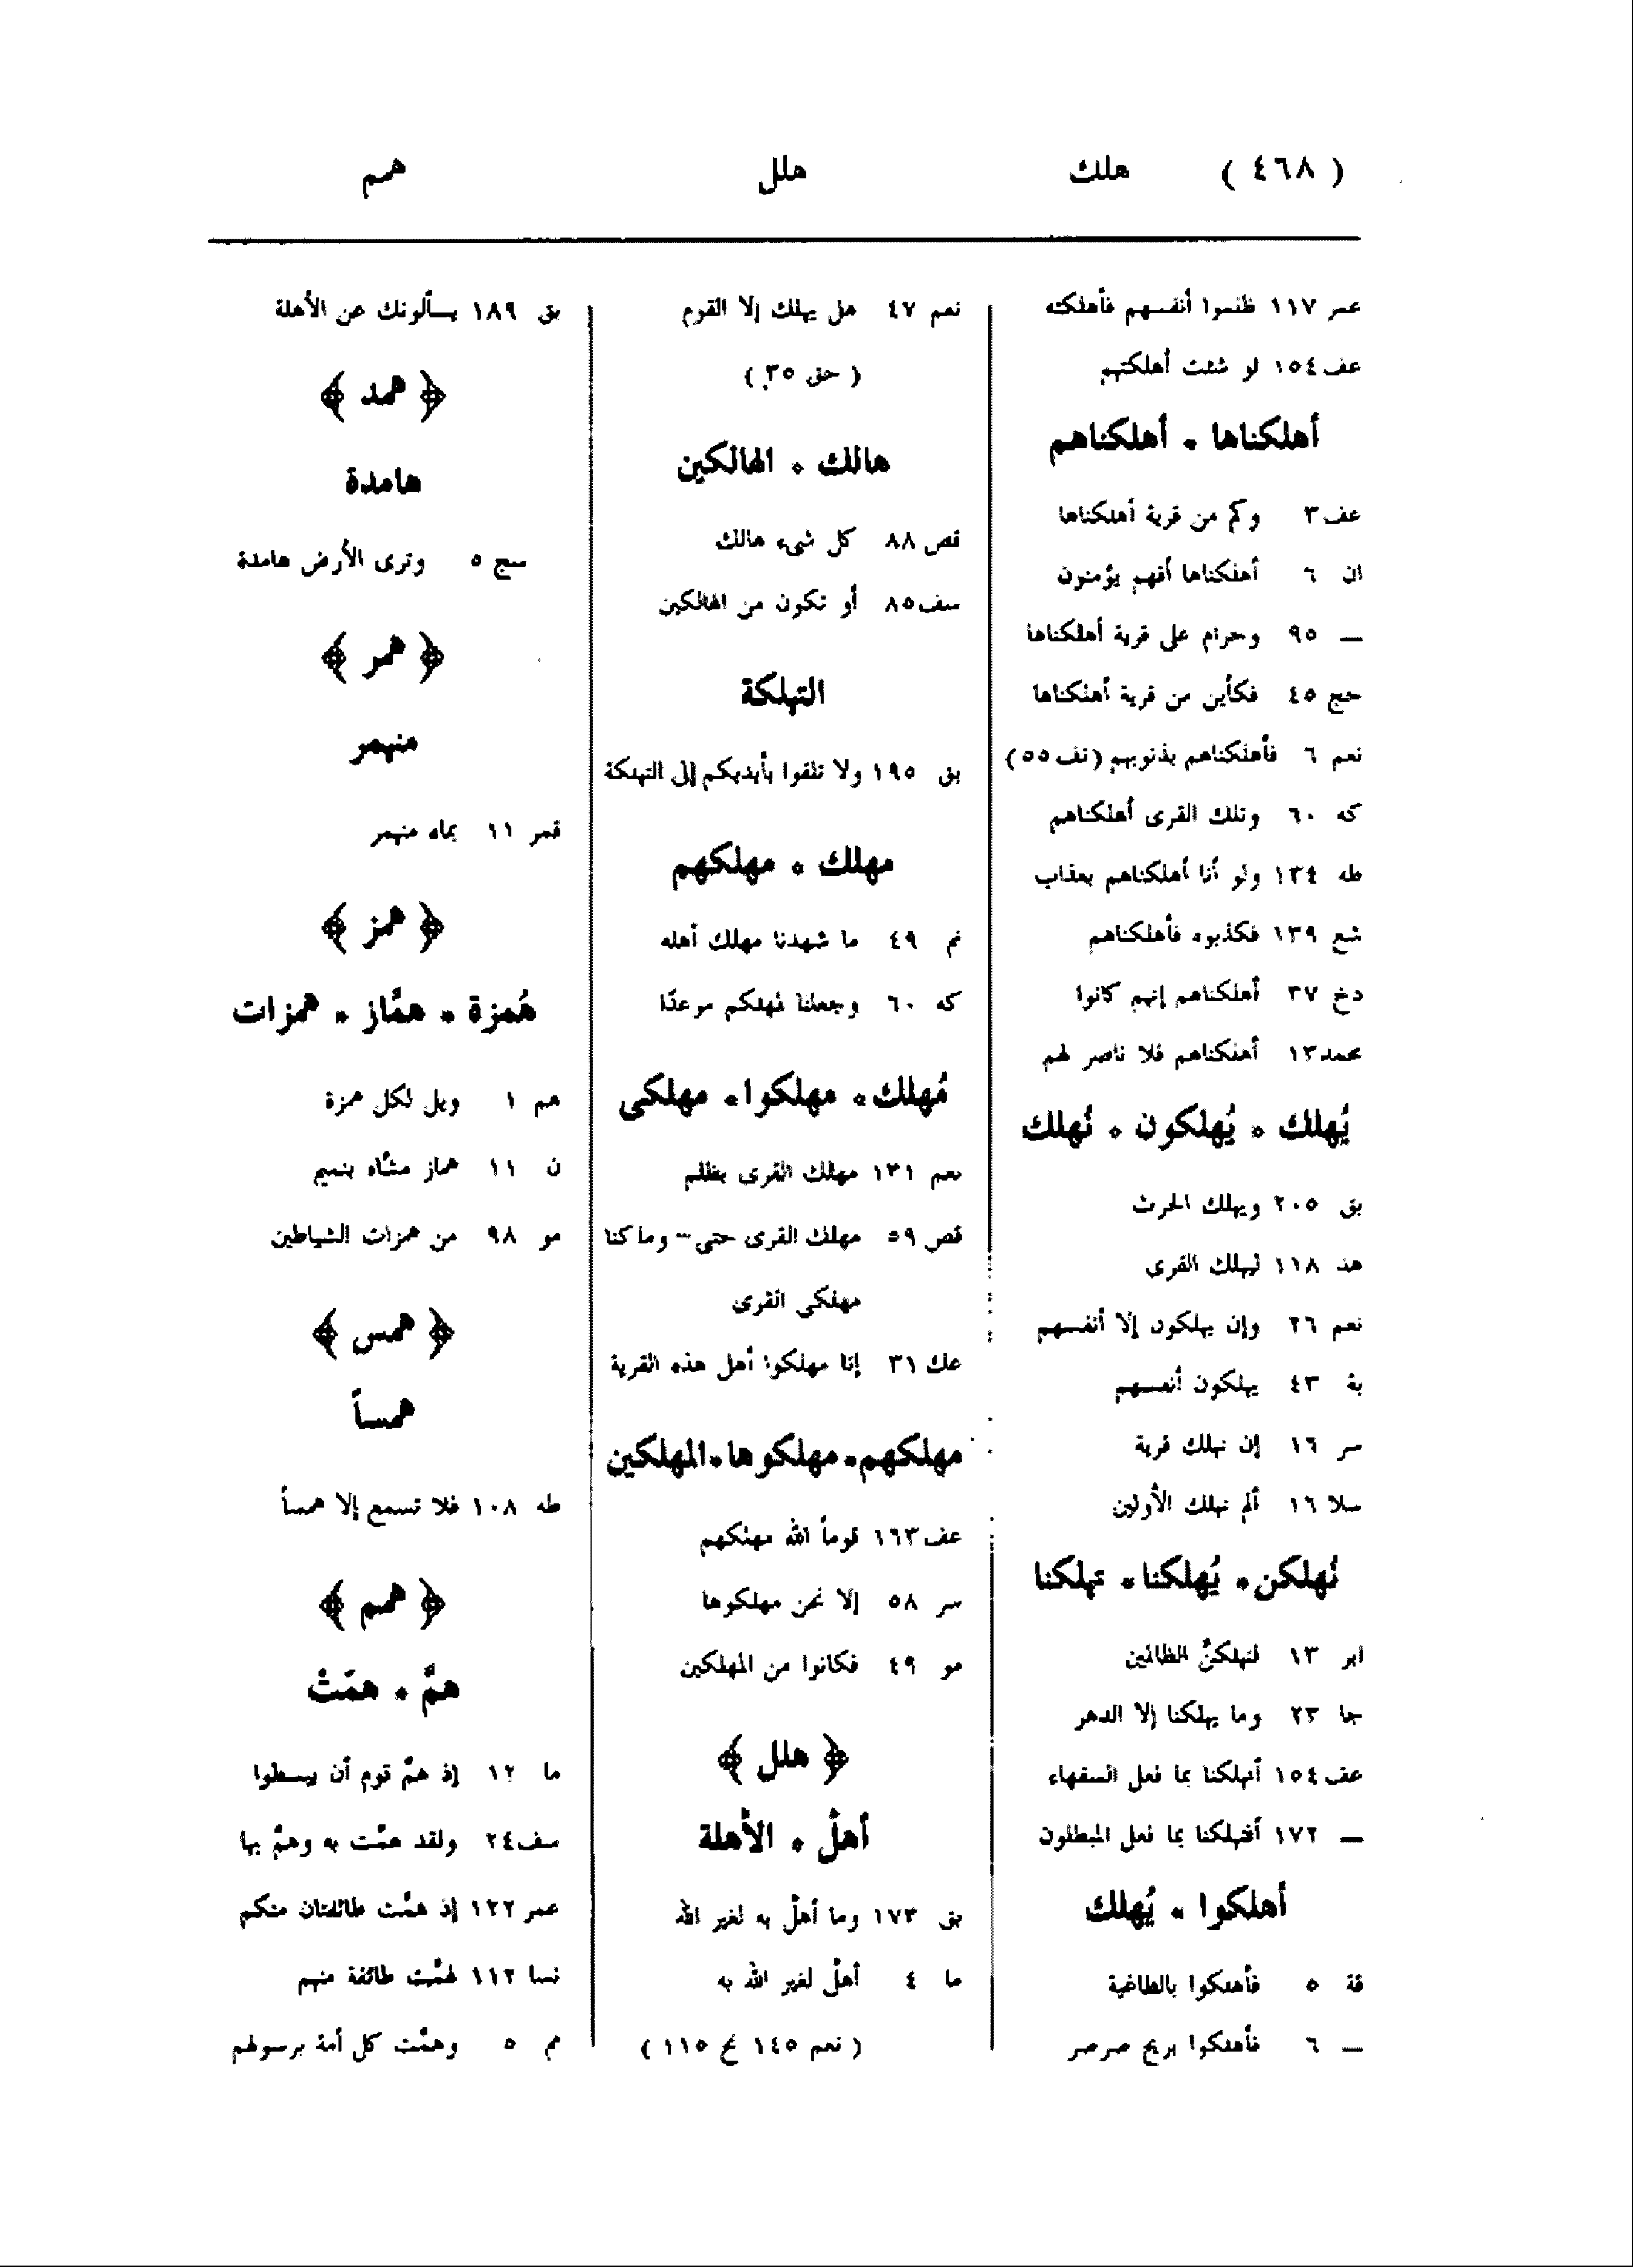 ( ٤٦٨ ) هلك هلل همم
عمر ١١٧ ظلموا أنفسهم فأهلكته
عف ١٥٤ لو شئت أهلكتهم
أهلكناها * أهلكناهم
عف ٣ وكم من قرية أهلكناها
ان ٦ أهلكناها أفهم يؤمنون
— ٩٥ وحرام على قرية أهلكناها
حج ٤٥ فكأين من قرية أهلكناها
نعم ٦ فأهلكناهم بذنوبهم (نف ٥٥)
كه ٦٠ وتلك القرى أهلكناهم
طه ١٣٤ ولو أنا أهلكناهم بعذاب
شع ١٣٩ فكذبوه فأهلكناهم
دخ ٣٧ أهلكناهم إنهم كانوا
محمد ١٣ أهلكناهم فلا ناصر لهم
يُهلك * يُهلكون * نُهلك
بق ٢٠٥ ويهلك الحرث
هد ١١٨ ليهلك القرى
نعم ٢٦ وإن يهلكون إلا أنفسهم
بة ٤٣ يهلكون أنفسهم
سر ١٦ إن نهلك قرية
سلا ١٦ ألم نهلك الأولين
نُهلكن * يُهلكنا * تهلكنا
ابر ١٣ لنهلكنَّ الظالمين
جا ٢٣ وما يهلكنا إلا الدهر
عف ١٥٤ أتهلكنا بما فعل السفهاء
— ١٧٢ أفتهلكنا بما فعل المبطلون
أهلكوا * يُهلك
قة ٥ فأهلكوا بالطاغية
— ٦ فأهلكوا بريح صرصر
نعم ٤٧ هل يهلك إلا القوم
( حق ٣٥ )
هالك * الهالكين
قص ٨٨ كل شيء هالك
سف ٨٥ أو تكون من الهالكين
التهلكة
بق ١٩٥ ولا تلقوا بأيديكم إلى التهلكة
مهلك * مهلكهم
نم ٤٩ ما شهدنا مهلك أهله
كه ٦٠ وجعلنا لمهلكهم موعدًا
مُهلك * مهلكوا * مهلكى
نعم ١٣١ مهلك القرى بظلم
قص ٥٩ مهلك القرى حتى ... وما كنا
مهلكي القرى
عك ٣١ إنا مهلكوا أهل هذه القرية
مهلكهم * مهلكوها * المهلكين
عف ١٦٣ قوماً الله مهلكهم
سر ٥٨ إلا نحن مهلكوها
مو ٤٩ فكانوا من المهلكين
﴿ هلل ﴾
أهلّ * الأهلة
بق ١٧٣ وما أهلّ به لغير الله
ما ٤ أهلّ لغير الله به
( نعم ١٤٥ نح ١١٥ )
بق ١٨٩ يسألونك عن الأهلة
﴿ همد ﴾
هامدة
سج ٥ وترى الأرض هامدة
﴿ همر ﴾
منهمر
قمر ١١ بماء منهمر
﴿ همز ﴾
هُمزة * همَّاز * همزات
هم ١ ويل لكل همزة
ن ١١ هماز مشّاء بنميم
مو ٩٨ من همزات الشياطين
﴿ همس ﴾
همساً
طه ١٠٨ فلا تسمع إلا همساً
﴿ همم ﴾
همَّ * همّتْ
ما ١٢ إذ همَّ قوم أن يبسطوا
سف ٢٤ ولقد همَّت به وهمَّ بها
عمر ١٢٢ إذ همَّت طائفتان منكم
نسا ١١٢ لهمَّت طائفة منهم
مم ٥ وهمَّت كل أمة برسولهم